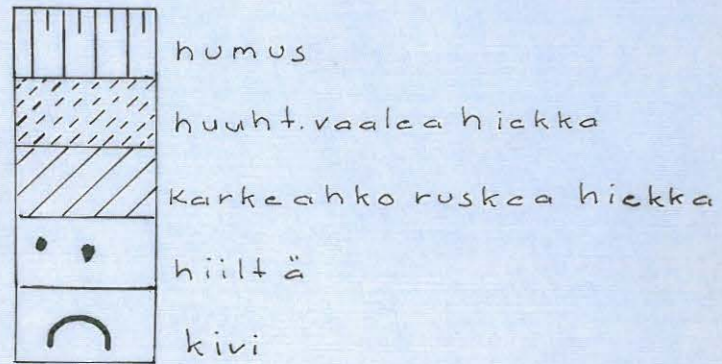 humus
huuht. vaalea hiekka
karkeahko ruskea hiekka
hiiltä
kivi